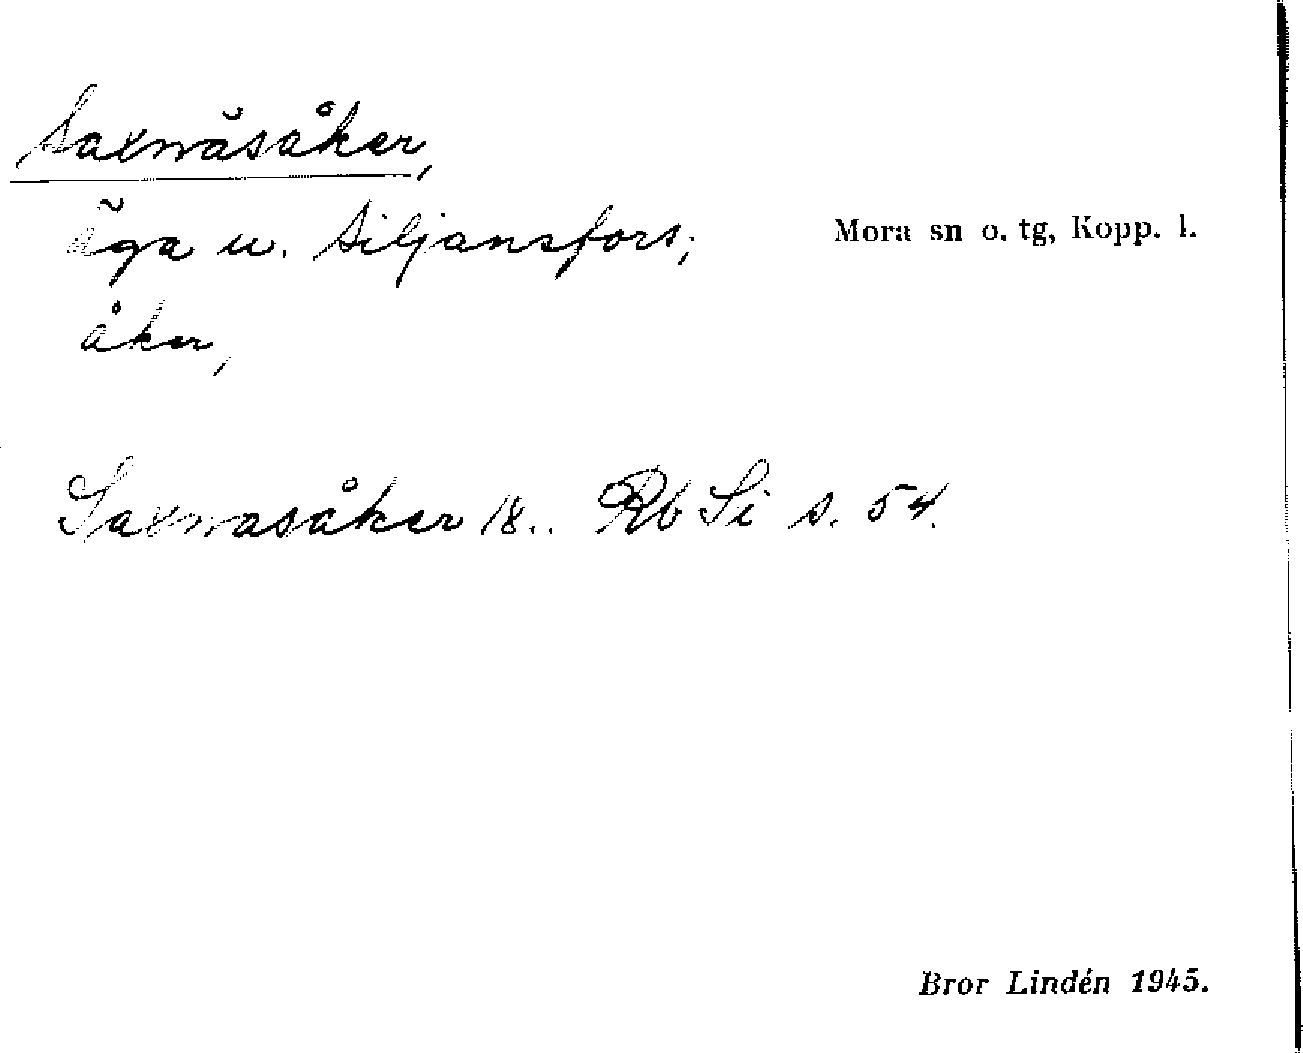 Saxnäsåker,
äga u. Siljansfors;
Mora sn o. tg, Kopp. l.
åker,
Saxnasåker 18.. Rb Si s. 54.
Bror Lindén 1945.